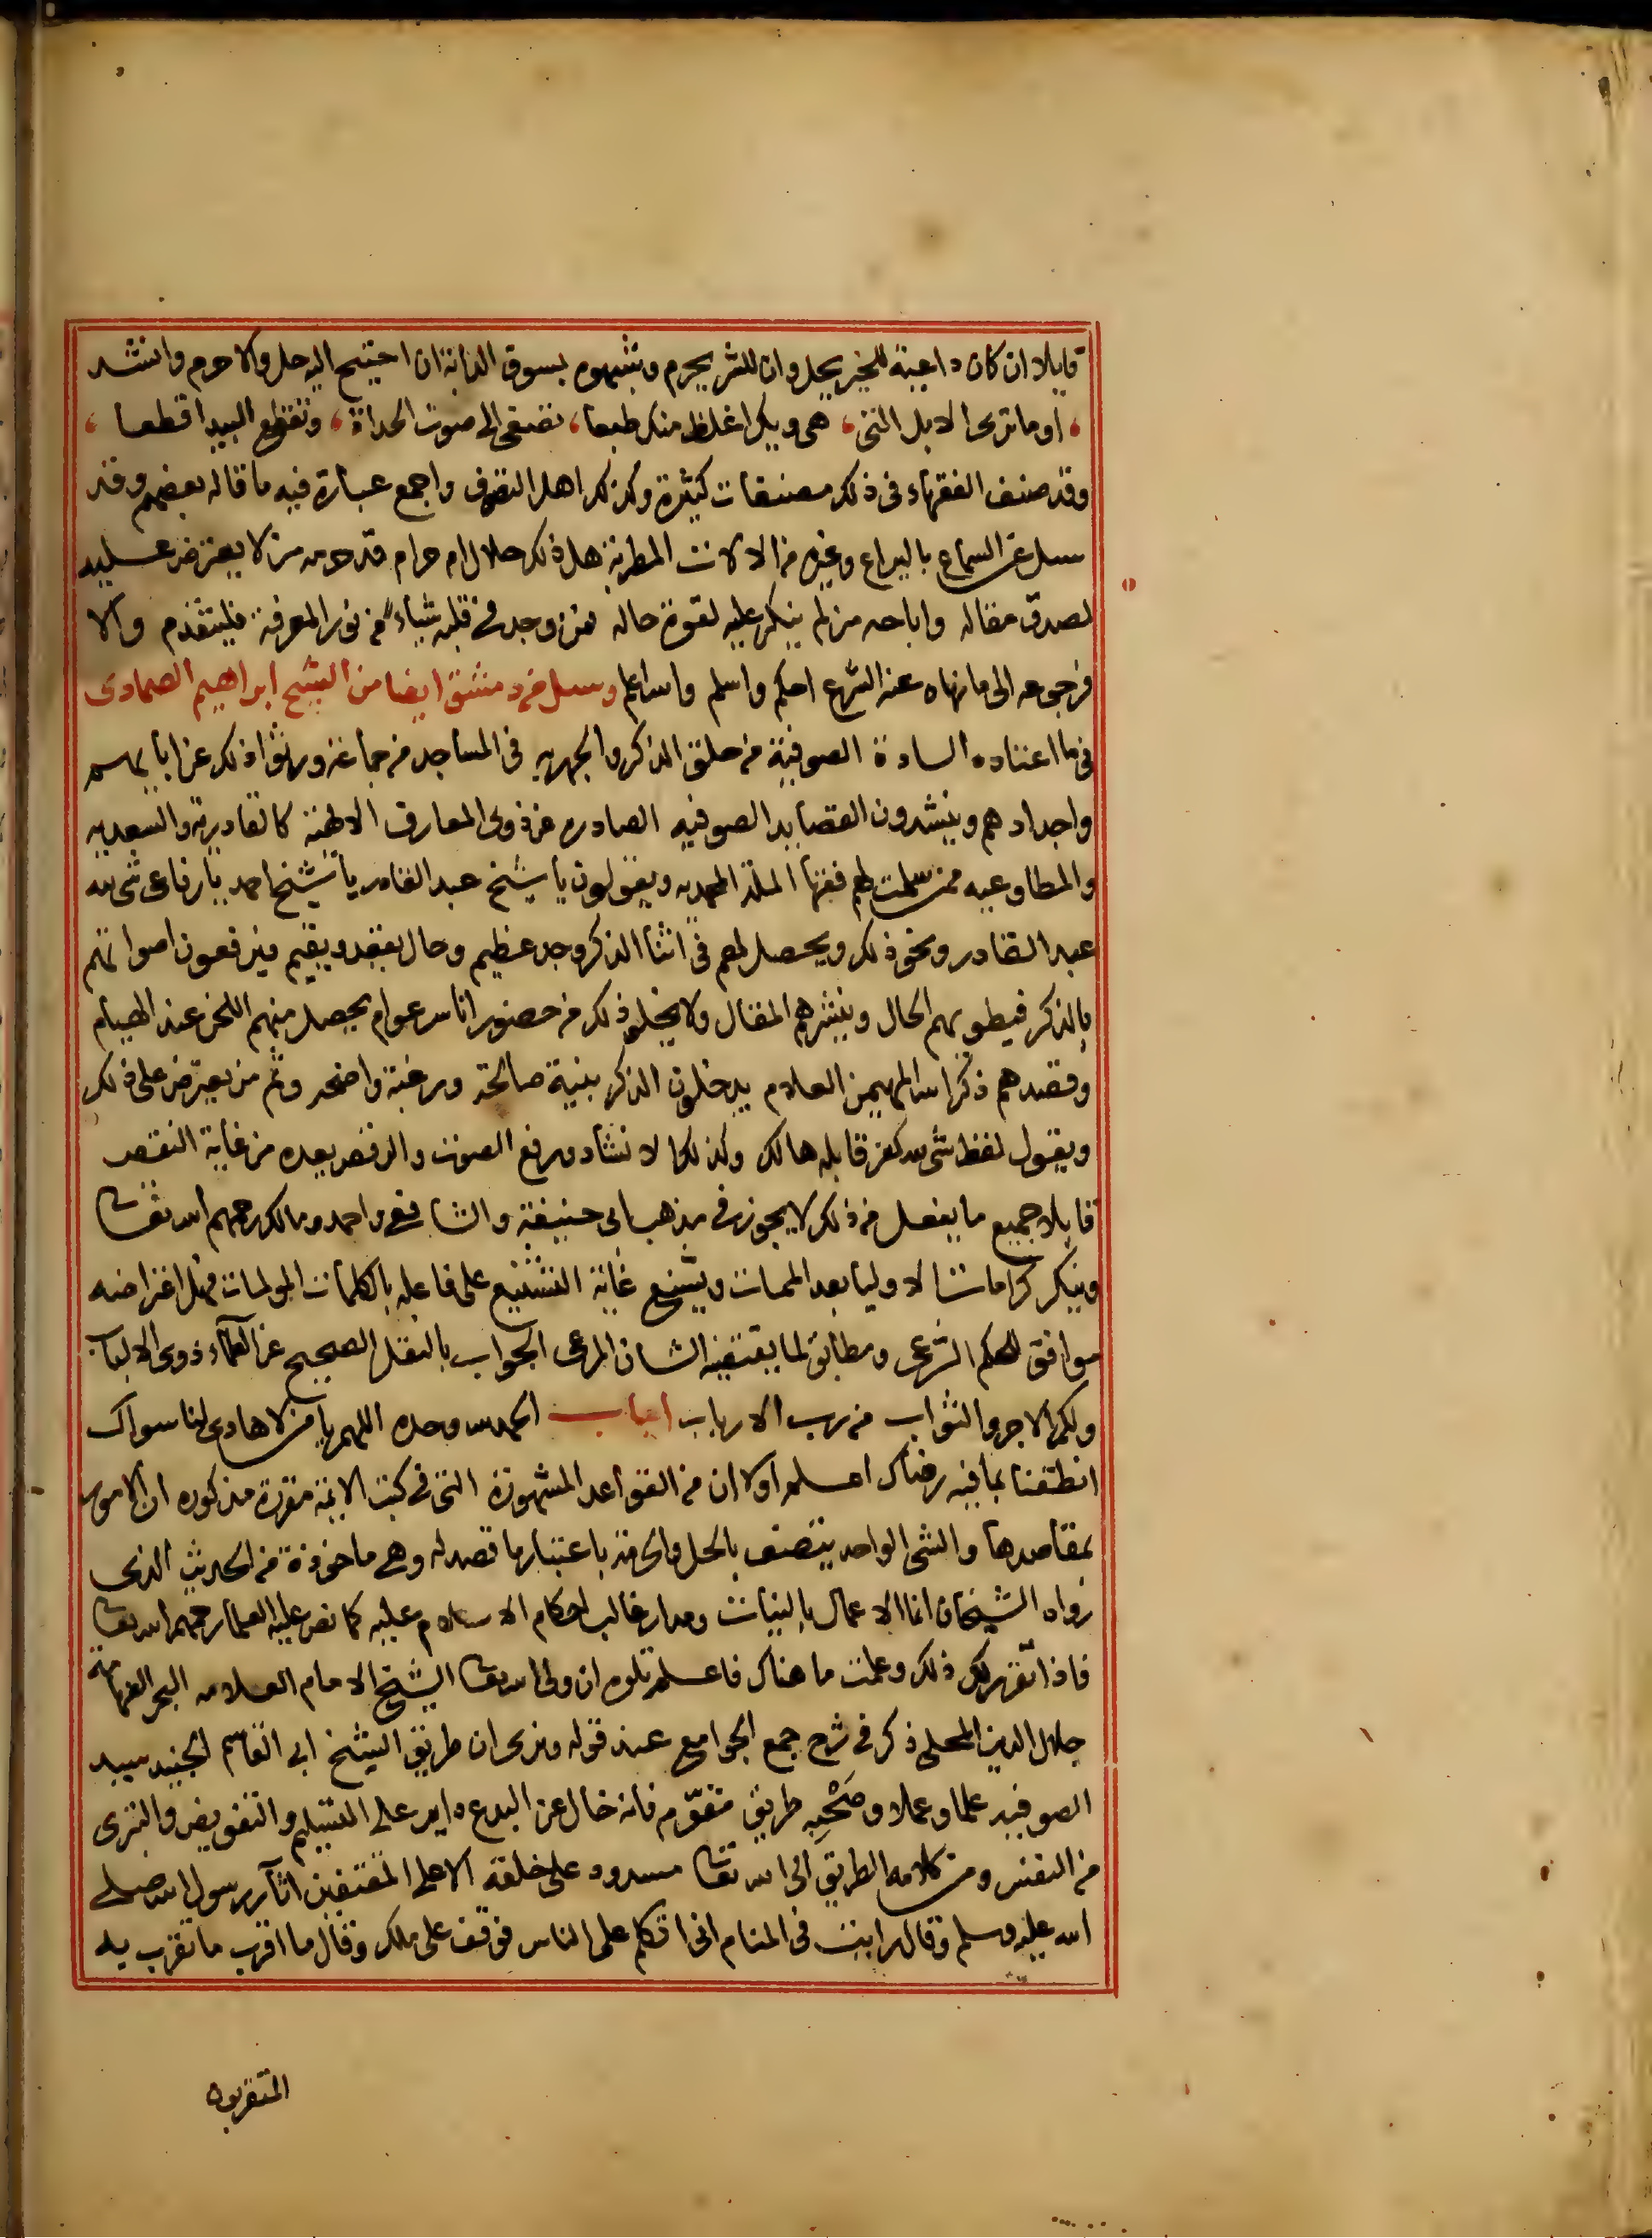 قايلا ان كان داعية للخير يحل وان للشر يحرم وشبهوه بسوق الدابة ان احتيج اليه حل والا حرم وانشد
، اوما ترى الابل التى ، هى ويك اغلظ منك طبعا ، تصغى الى صوت الحداة ، وتقطع البيدا قطعا ،
وقد صنف الفقهاء فى ذلك مصنفات كثيرة وكذلك اهل التصوف واجمع عبارة فيه ما قاله بعضهم وقد
سيل عن السماع باليراع وغيره من الالات المطربة هل ذلك حلال ام حرام قد حرمه من لا يعترض عليه
لصدق مقاله واباحه من لم ينكر عليه لقوة حاله فمن وجد فى قلبه شياء من نور المعرفة فليتقدم والا
فرجوعه الى ما نهاه عنه الشرع احكم واسلم والله اعلم وسيل من دمشق ايضا من الشيخ ابراهيم الصمادى
فى ما اعتاده السادة الصوفية من حلق الذكر والجهر به فى المساجد من جماعة ورثوا ذلك عن ابايهم
واجدادهم وينشدون القصايد الصوفيه الصادره عن ذوى المعارف الالهية كالقادرية والسعديه
والمطاوعيه ممن سلمت لهم فقها الملة المحمديه ويقولون يا شيخ عبد القادر يا شيخ احمد يا رفاعى شى لله
عبد القادر ونحو ذلك ويحصل لهم فى اثنا الذكر وجد عظيم وحال يقعد ويقيم فيرفعون اصواتهم
بالذكر فيطوبهم الحال وينشرهم المقال ولا يخلو ذلك من حضور اناس عوام يحصل منهم اللحن عند الهيام
وقصدهم ذكر الله المهيمن العلام يدخلون الذكر بنية صالحة ورغبة واضحه وثم من يعترض على ذلك
ويقول لفظ شى لله كفر قايله هالك وكذلك الانشاد ورفع الصوت والرقص يعده من غاية النقص
قايلا جميع ما يفعل من ذلك لا يجوز فى مذهب ابى حنيفة والشافعى واحمد ومالك رحمهم الله تعالى
وينكر كرامات الاوليا بعد الممات ويشنع غاية التشنيع على فاعله بالكلمات المولمات فهل اعتراضه
موافق للحكم الشرعى ومطابق لما يقتضيه الشان المرعى الجواب بالنقل الصحيح عن العلماء ذوى الالباب
ولكم الاجر والثواب من رب الارباب اجاب الحمد لله وحده اللهم يا من لا هادى لنا سواك
انطقنا بما فيه رضاك اعلم اولا ان من القواعد المشهورة التى فى كتب الايمة مقررة مذكوره ان الامور
بمقاصدها والشى الواحد يتصف بالحل والحرمة باعتبار ما قصد له وهى ماخوذة من الحديث الذى
رواه الشيخان انما الاعمال بالنيات ومدار غالب احكام الاسلام عليه كما نص عليه العلما رحمهم الله تعالى
فاذا تقرر لك ذلك وعلمت ما هناك فاعلم تلوه ان ولى الله تعالى الشيخ الامام العلامه البحر الفهامة
جلال الدين المحلى ذكر فى شرح جمع الجوامع عند قوله ونرى ان طريق الشيخ ابى القاسم الجنيد سيد
الصوفيه علما وعملا وصَحْبِه طريق مقوّم فانه خال عن البدع داير على التسليم والتفويض والتبرى
من النفس ومن كلامه الطريق الى الله تعالى مسدود على خلقه الا على المقتفين اثار رسول الله صلى
الله عليه وسلم وقال رايت فى المنام انى اتكلم على الناس فوقف على ملك وقال ما اقرب ما تقرب به
المتقربون